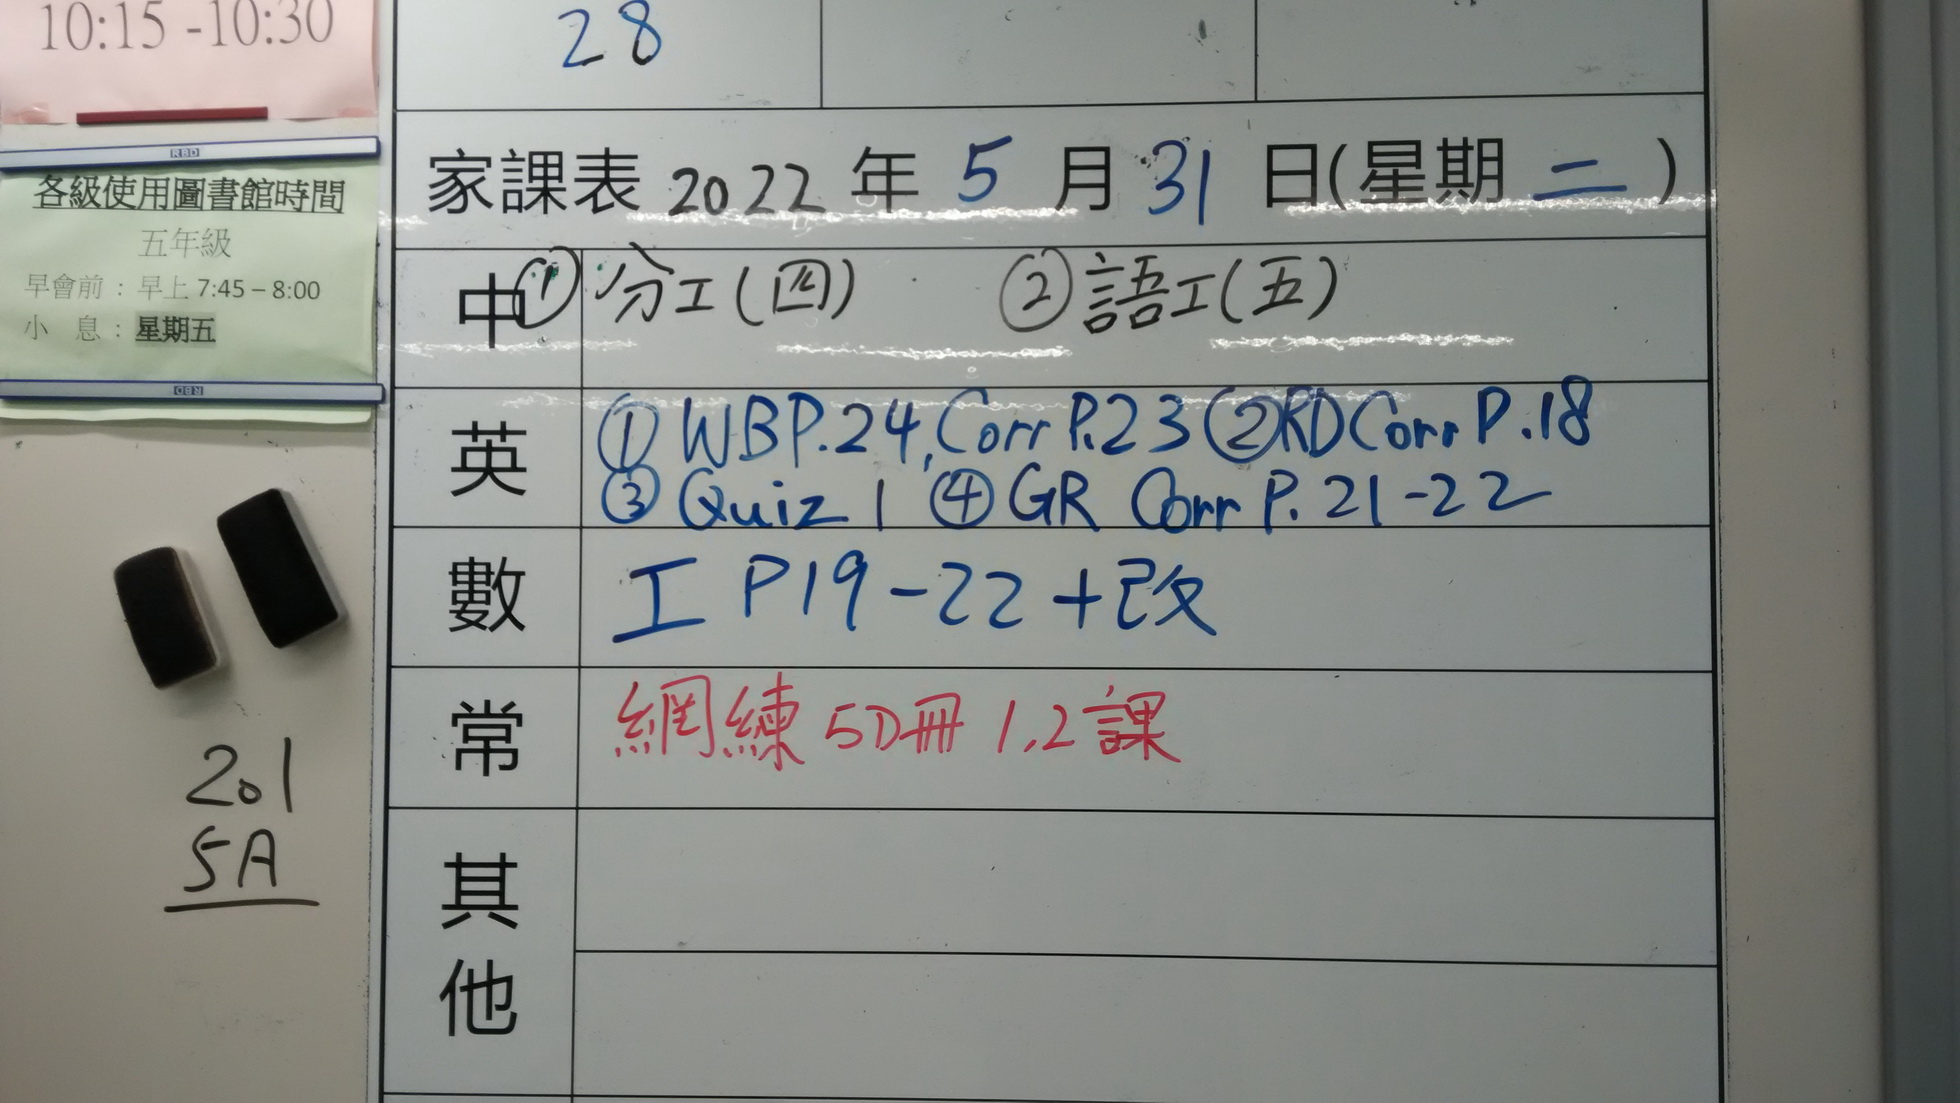 10:15 -10:30
28
RBD
各級使用圖書館時間
五年級
早會前：早上 7:45 – 8:00
小 息：星期五
RBD
家課表 2022 年 5 月 31 日(星期 二 )
中 ① 分工(四) ② 語工(五)
英 ① WB P.24, Corr P.23 ② RD Corr P.18
③ Quiz 1 ④ GR Corr P. 21-22
數 工 P19-22 +改
常 網練 5D冊 1,2課
其他
201
5A